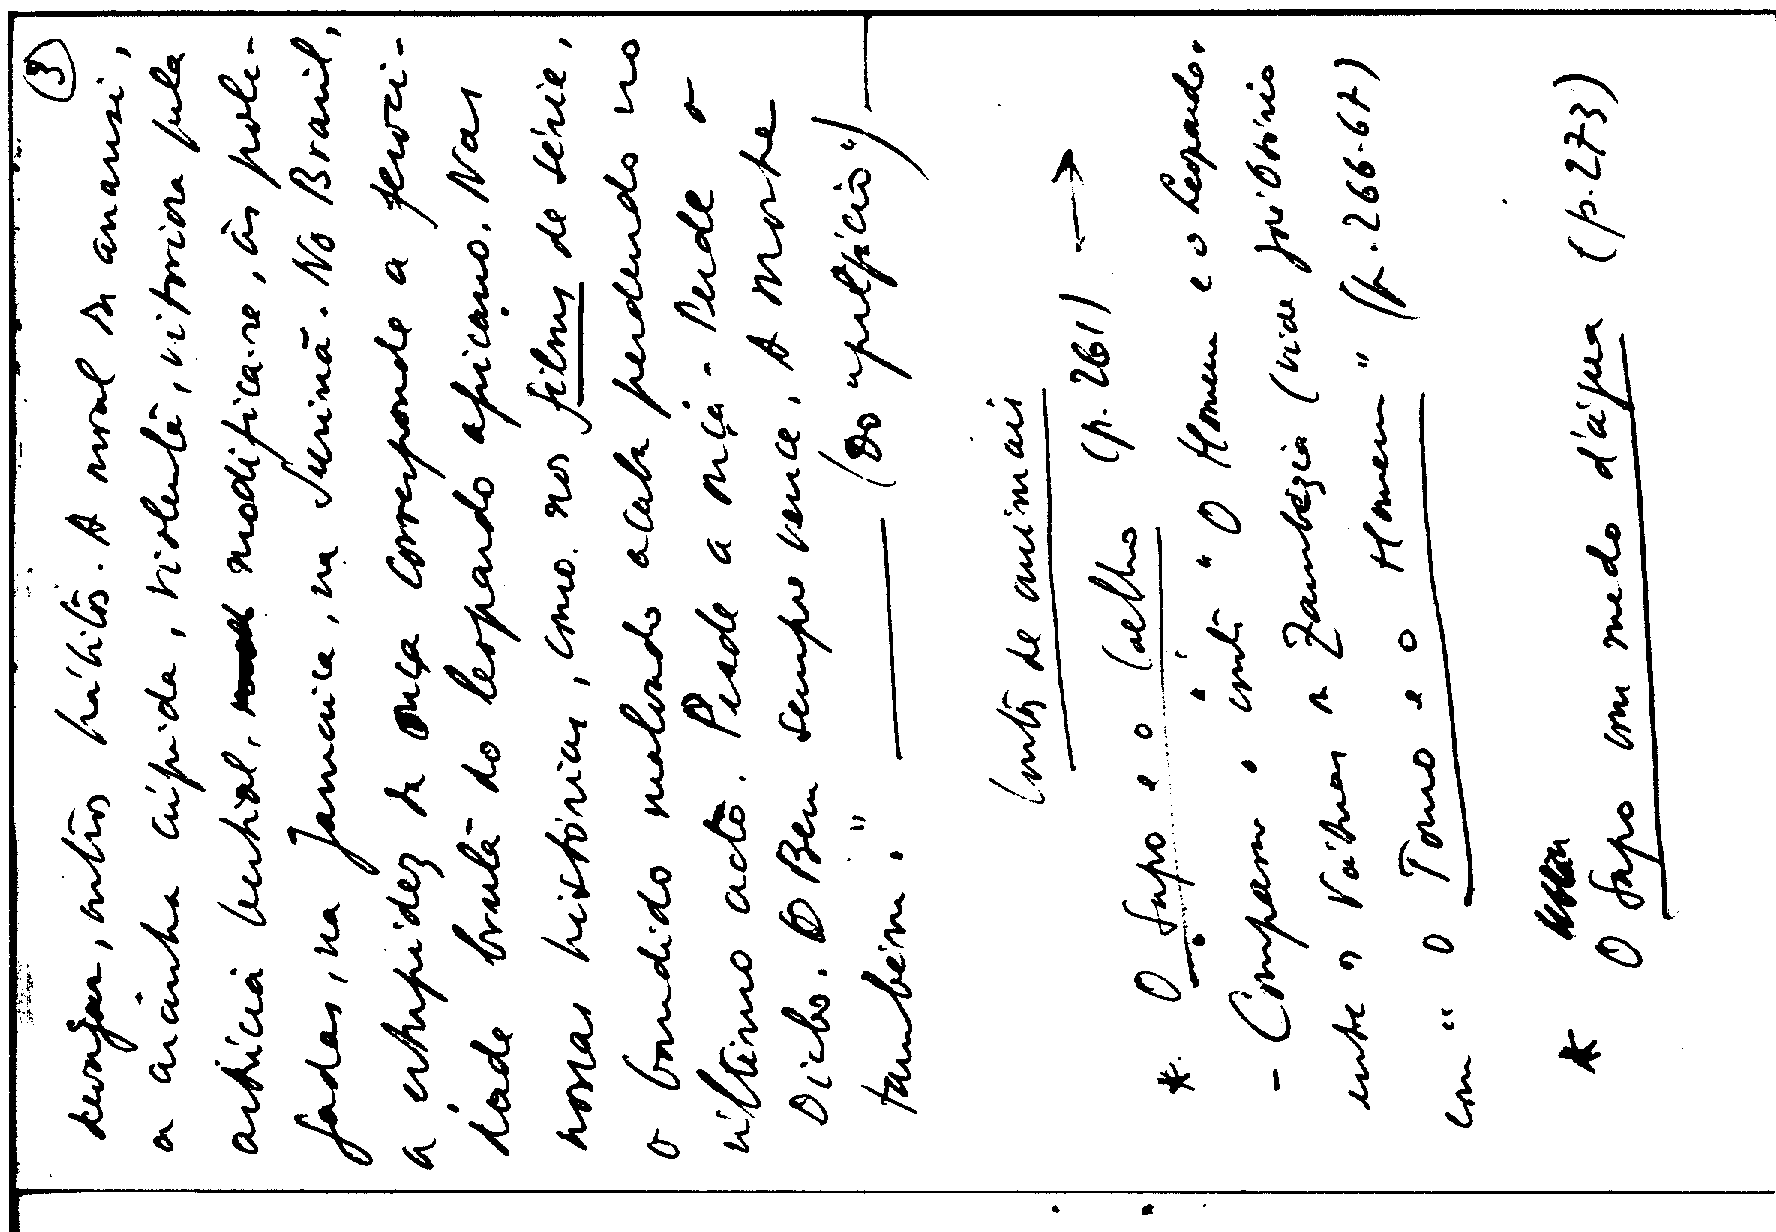 ③
outros hábitos. A moral de anansi,
a aranha cúpida, violenta, vitoriosa pela
astúcia bestial, modifica-se, às pole-
gadas, na Jamaica, na Surinã. No Brasil,
a estupidez da onça corresponde a feroci-
dade bruta do leopardo africano. Nas
nossas histórias, como nos films de série,
o bandido malvado acaba perdendo no
último acto. Perde a onça. Perde o
Diabo. O Bem sempre vence. A Morte
também." (Do "prefácio")
Contos de animais
* O Sapo e o Coelho (p. 261) →
- Compara o conto "O Homem e o Leopardo,
entre os Vátuas da Zambézia (vide José Osório
com "O Touro e o Homem" (p. 266-67)
* O Sapo com medo d'água (p. 273)